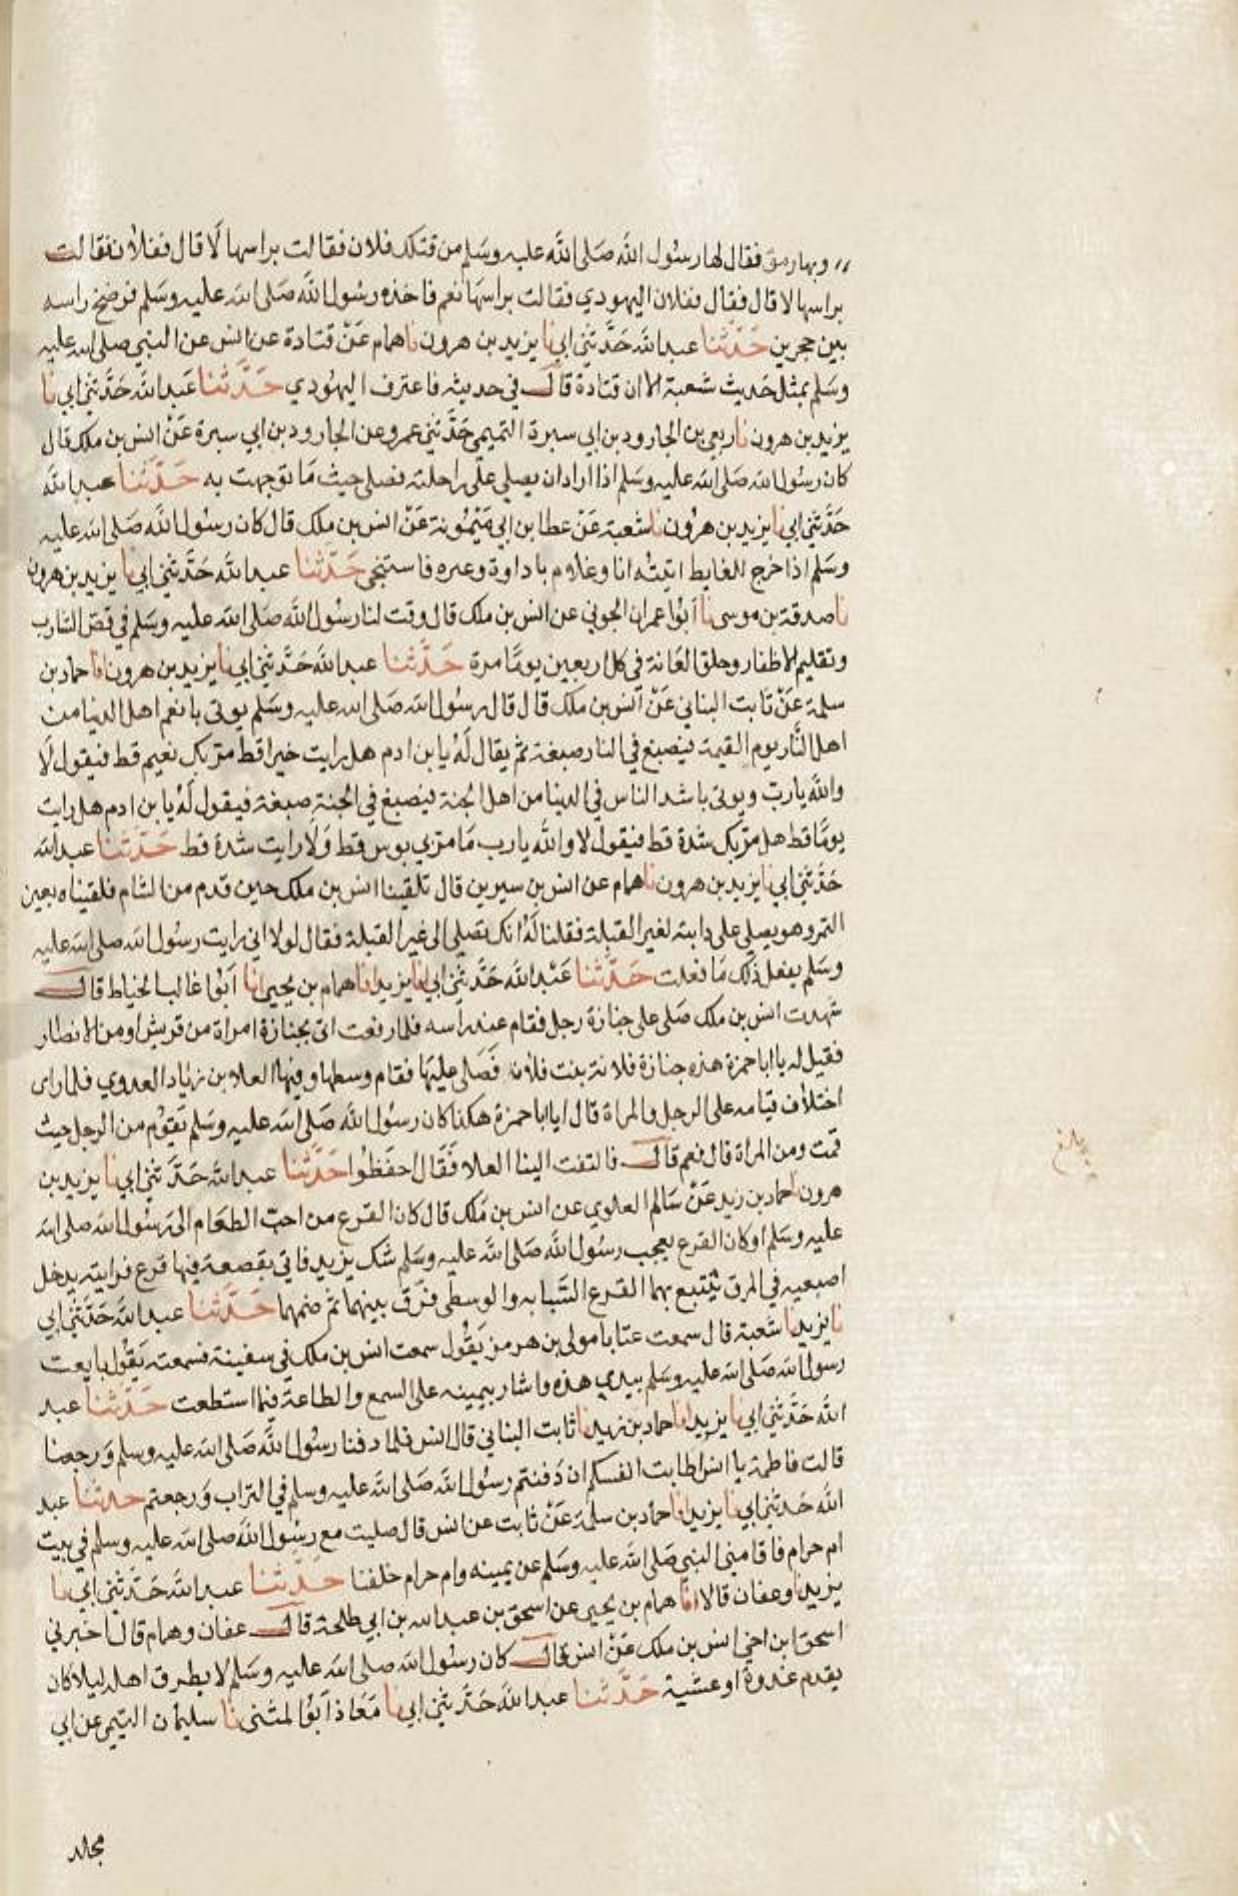 وبها رمق فقال لها رسول الله صلى الله عليه وسلم من قتلك فلان فقالت براسها لا قال ففلان فقالت
براسها لا قال فقال ففلان اليهودي فقالت براسها نعم فاخذه رسول الله صلى الله عليه وسلم فرضخ راسه
بين حجرين حدثنا عبد الله حدثني ابي نا يزيد بن هرون نا همام عن قتادة عن انس عن النبي صلى الله عليه
وسلم بمثل حديث شعبة الا ان قتادة قال في حديثه فاعترف اليهودي حدثنا عبد الله حدثني ابي نا
يزيد بن هرون نا ربعي بن الجارود بن ابي سبرة التميمي حدثني عمرو عن الجارود بن ابي سبرة عن انس بن ملك قال
كان رسول الله صلى الله عليه وسلم اذا اراد ان يصلي على راحلته فصلى حيث ما توجهت به حدثنا عبد الله
حدثني ابي نا يزيد بن هرون نا شعبة عن عطا بن ابي ميمونة عن انس بن ملك قال كان رسول الله صلى الله عليه
وسلم اذا خرج للغايط اتيته انا وغلام باداوة وعنزه فاستنجى حدثنا عبد الله حدثني ابي نا يزيد بن هرون
نا صدقة بن موسى نا ابوا عمران الجوني عن انس بن ملك قال وقت لنا رسول الله صلى الله عليه وسلم في قص الشارب
وتقليم الاظفار وحلق العانة في كل اربعين يوما مرة حدثنا عبد الله حدثني ابي نا يزيد بن هرون انا حماد بن
سلمة عن ثابت البناني عن انس بن ملك قال قال رسول الله صلى الله عليه وسلم يوتى بانعم اهل الدنيا من
اهل النار يوم القيمة فيصبغ في النار صبغة ثم يقال له يا بن ادم هل رايت خيرا قط مر بك نعيم قط فيقول لا
والله يارب ويوتى باشد الناس في الدنيا من اهل الجنة فيصبغ في الجنة صبغة فيقول له يا بن ادم هل رايت
يوما قط هل مر بك شدة قط فيقول لا والله يارب ما مر بي بوس قط ولا رايت شدة قط حدثنا عبد الله
حدثني ابي نا يزيد بن هرون نا همام عن انس بن سيرين قال تلقينا انس بن ملك حين قدم من الشام فلقيناه بعين
التمر وهو يصلي على دابته لغير القبلة فقلنا له انك تصلي الى غير القبلة فقال لولا اني رايت رسول الله صلى الله عليه
وسلم يفعل ذلك ما فعلت حدثنا عبد الله حدثني ابي انا يزيد انا همام بن يحيى انا ابوا غالب الخياط قال
شهدت انس بن ملك صلى على جنازة رجل فقام عند راسه فلما رفعت اتى بجنازة امراة من قريش او من الانصار
فقيل له يا ابا حمزة هذه جنازة فلانة بنت فلان فصلى عليها فقام وسطها وفينا العلا بن زياد العدوي فلما راى
اختلاف قيامه على الرجل والمراة قال ايا ابا حمزة هكذا كان رسول الله صلى الله عليه وسلم يقوم من الرجل حيث
قمت ومن المراة قال نعم قال فالتفت الينا العلا فقال احفظوا حدثنا عبد الله حدثني ابي نا يزيد بن
هرون حماد بن زيد عن سالم العلوي عن انس بن ملك قال كان القرع من احب الطعام الى رسول الله صلى الله
عليه وسلم او كان القرع يعجب رسول الله صلى الله عليه وسلم شك يزيد فاتي بقصعة فيها قرع فرايته يدخل
اصبعيه في المرق يتتبع بهما القرع السبابه والوسطى فرق بينهما ثم ضمهما حدثنا عبد الله حدثني ابي
نا يزيد نا شعبة قال سمعت عتابا مولى بن هرمز يقول سمعت انس بن ملك في سفينة فسمعته يقول بايعت
رسول الله صلى الله عليه وسلم بيدي هذه واشار بيمينه على السمع والطاعة فيما استطعت حدثنا عبد
الله حدثني ابي نا يزيد انا حماد بن زيد نا ثابت البناني قال انس فلما دفنا رسول الله صلى الله عليه وسلم ورجعنا
قالت فاطمة يا انس اطابت انفسكم ان دفنتم رسول الله صلى الله عليه وسلم في التراب ورجعتم حدثنا عبد
الله حدثني ابي نا يزيد انا حماد بن سلمة عن ثابت عن انس قال صليت مع رسول الله صلى الله عليه وسلم في بيت
ام حرام فاقامني النبي صلى الله عليه وسلم عن يمينه وام حرام خلفنا حدثنا عبد الله حدثني ابي نا
يزيد وعفان قالا انا همام بن يحيى عن اسحق بن عبد الله بن ابي طلحة قال عفان وهمام قال اخبرني
اسحق ابن اخي انس بن ملك عن انس قال كان رسول الله صلى الله عليه وسلم لا يطرق اهله ليلا كان
يقدم غدوة او عشية حدثنا عبد الله حدثني ابي نا معاذ ابوا المثنى نا سليمان التيمي عن ابي
مجلد
بلغ